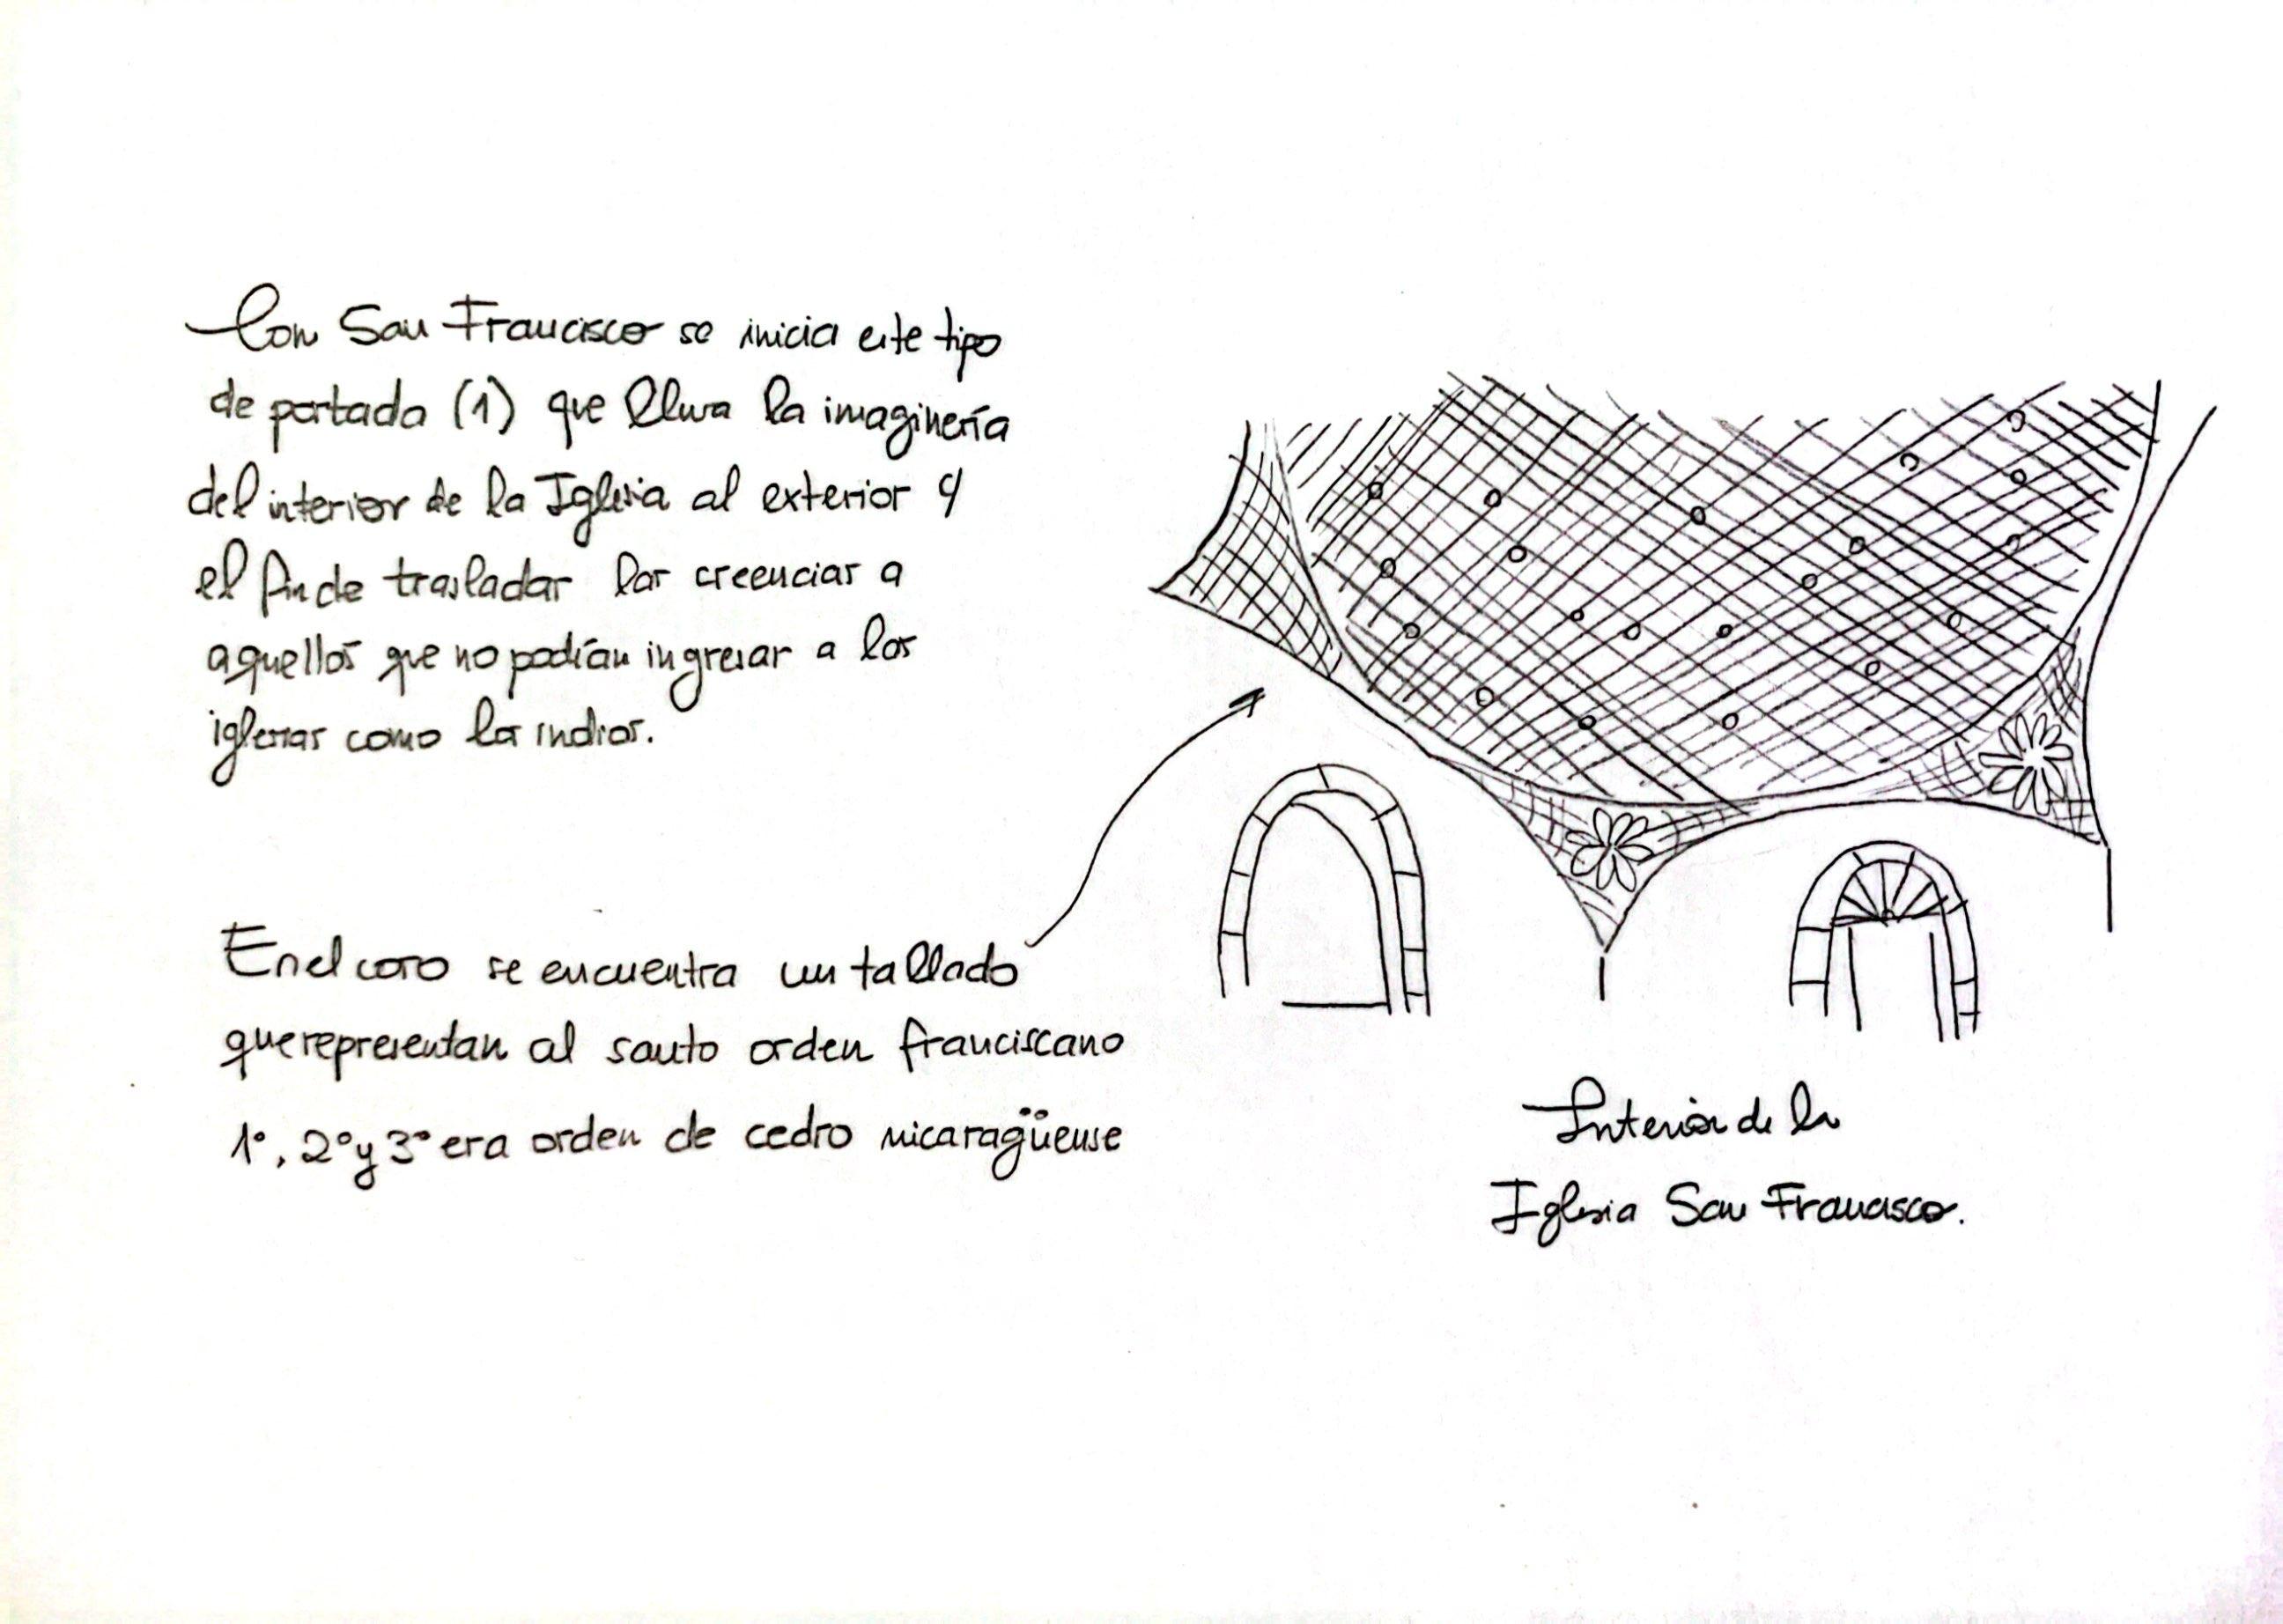 Con San Francisco se inicia este tipo
de portada (1) que lleva la imaginería
del interior de la Iglesia al exterior y
el fin de trasladar las creencias a
aquellos que no podían ingresar a las
iglesias como los indios.
En el coro se encuentra un tallado
que representan al santo orden franciscano
1°, 2° y 3° era orden de cedro nicaragüense
Interior de la
Iglesia San Francisco.